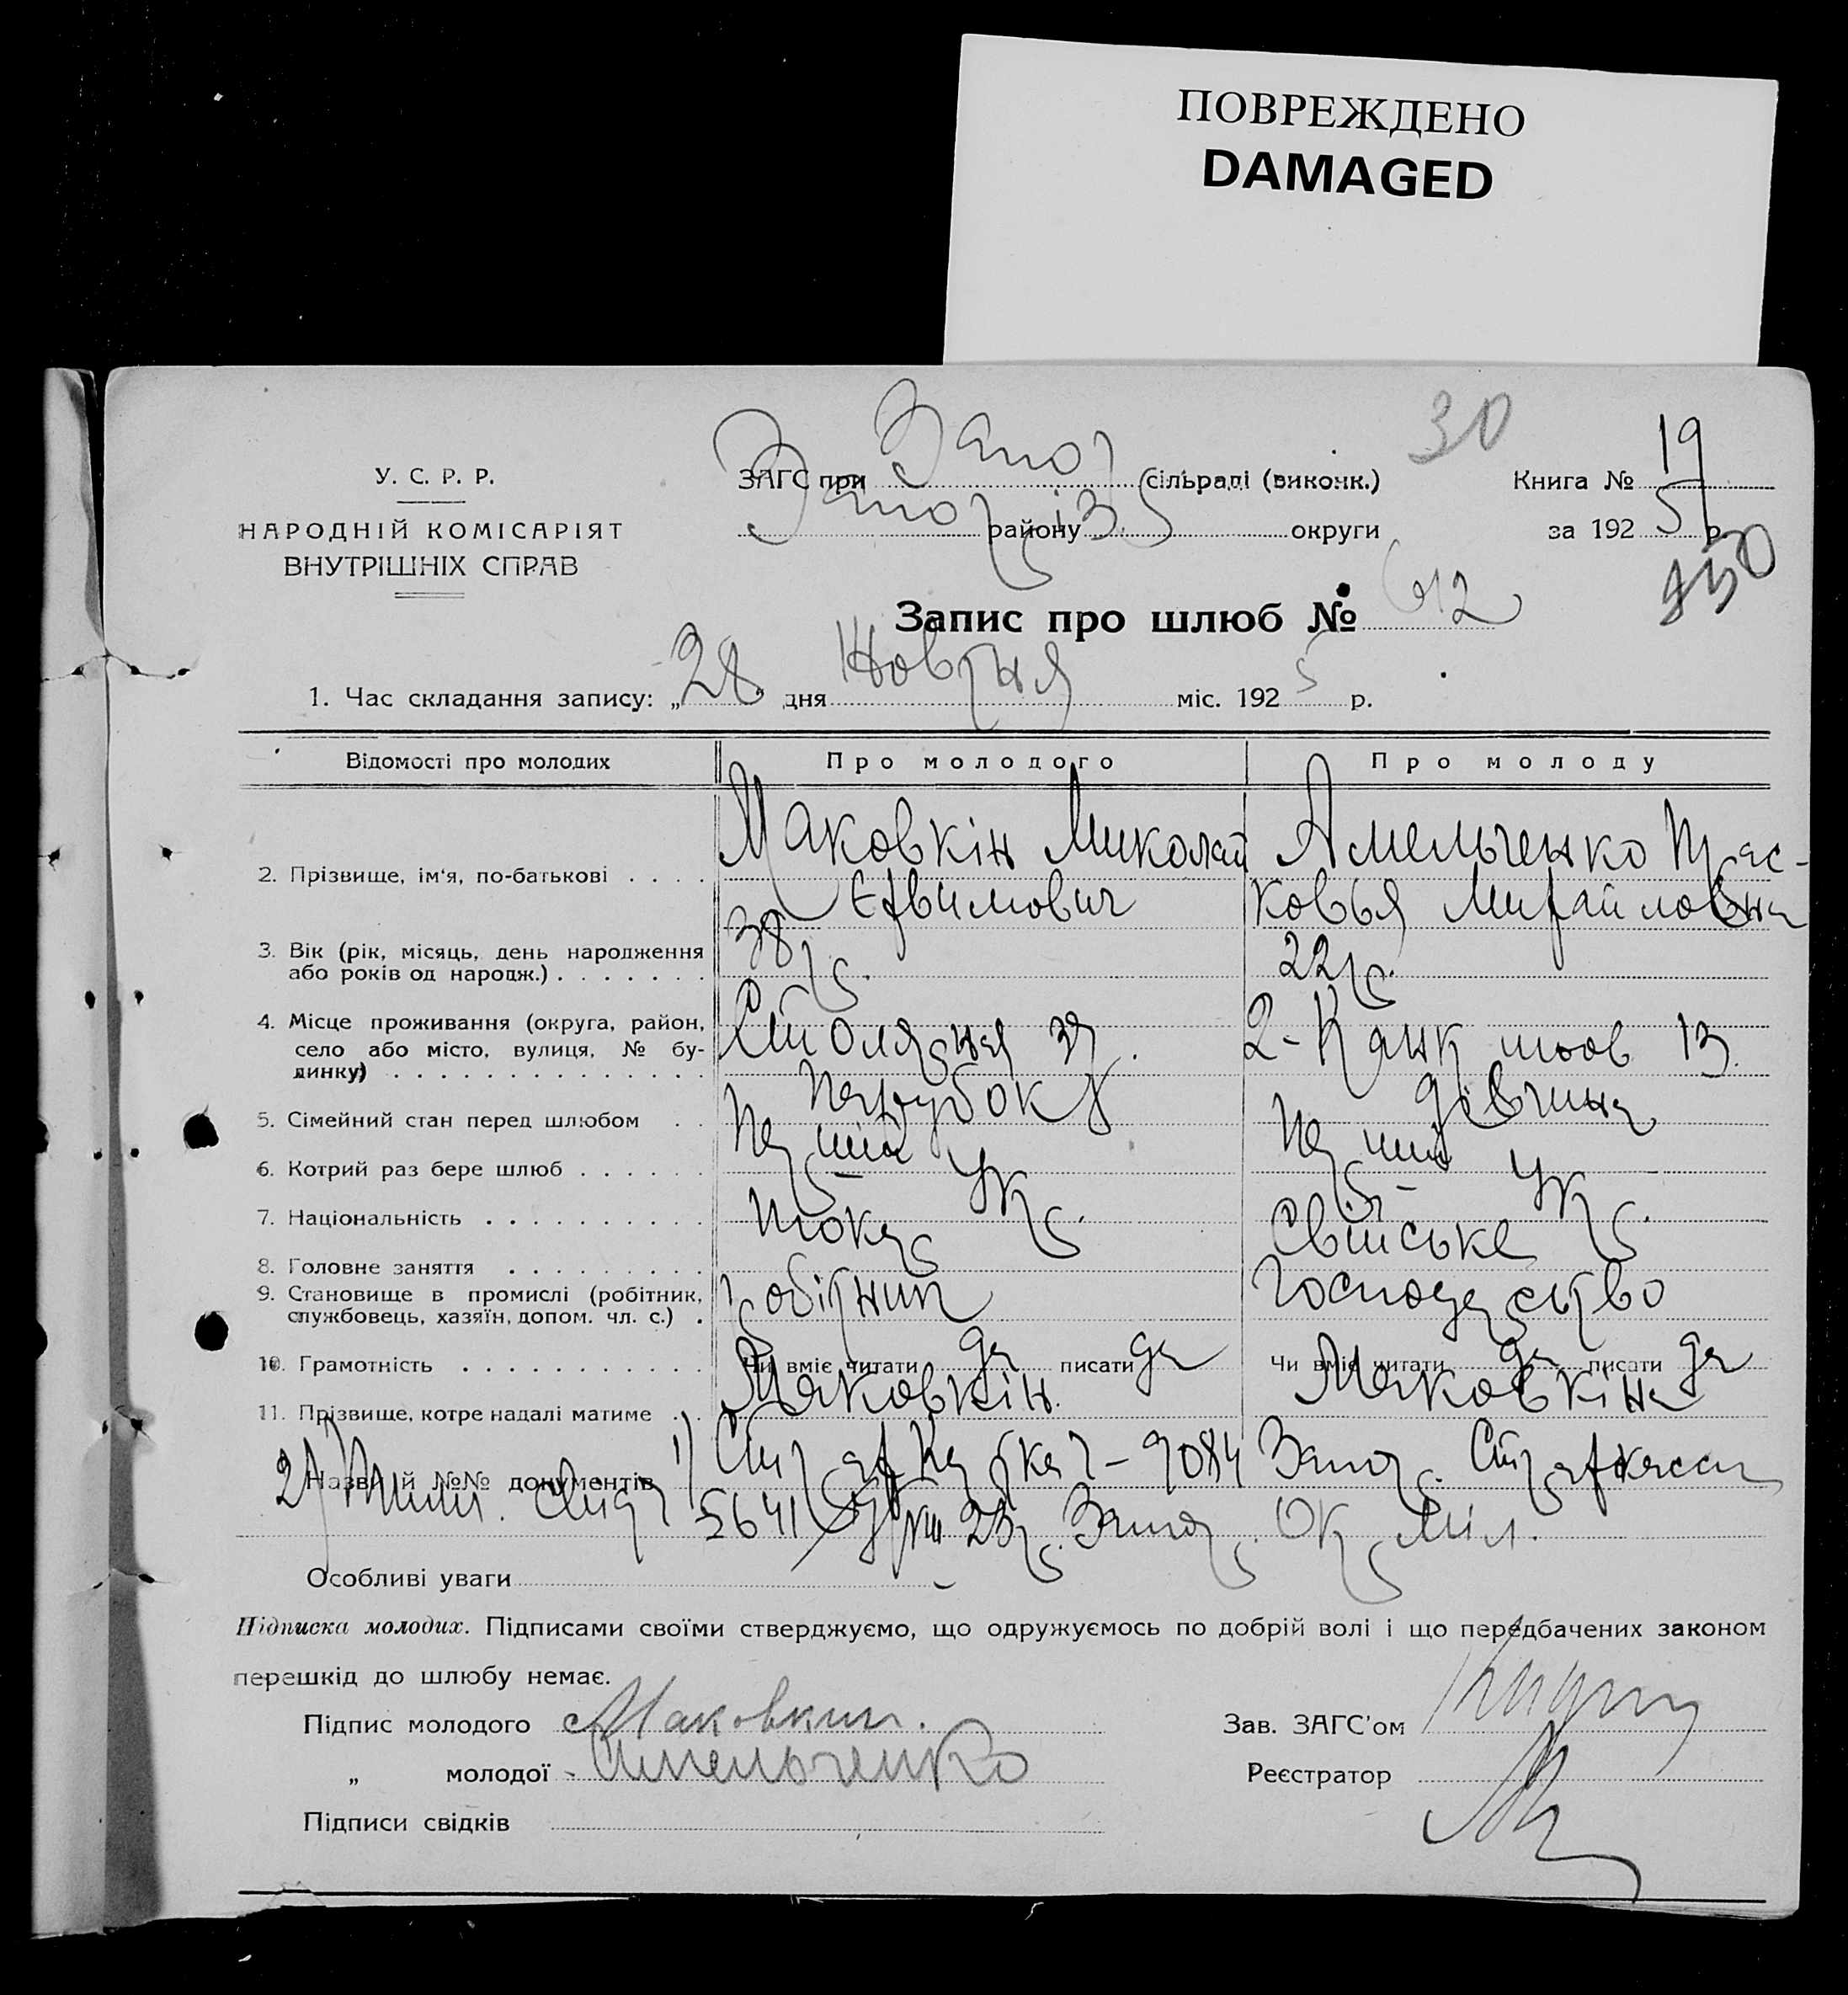 ПОВРЕЖДЕНО
DAMAGED
У. С. Р. Р.
НАРОДНІЙ КОМІСАРІЯТ
ВНУТРІШНІХ СПРАВ
ЗАГС при Запор сільраді (виконк.)
Запоріз району округи
30
Книга № 19
за 1925 р.
Запис про шлюб № 612
1. Час складання запису: „28 дня Жовтня міс. 1925 р.
Відомості про молодих Про молодого Про молоду
2. Прізвище, ім'я, по-батькові Маковкін Миколай Єфимович Амельченко Прас-ковья Михайловна
3. Вік (рік, місяць, день народження або років од народж.) 38 р. 22 р.
4. Місце проживання (округа, район, село або місто, вулиця, № будинку) Столярная 39. 2- 13.
5. Сімейний стан перед шлюбом Парубок дівчина
6. Котрий раз бере шлюб Перший Перший
7. Національність Укр. Укр.
8. Головне заняття Токар Свійське
9. Становище в промислі (робітник, службовець, хазяїн, допом. чл. с.) робітник господарство
10. Грамотність Чи вміє читати да писати да Чи вміє читати да писати да
11. Прізвище, котре надалі матиме Маковкін. Маковкіна
Назва й №№ документів 1) Страх Картка 9084 Запор. Страхкасси
2) 5641 23 р. Запор. Окр. Міл.
Особливі уваги
Підписка молодих. Підписами своїми стверджуємо, що одружуємось по добрій волі і що передбачених законом
перешкід до шлюбу немає.
Підпис молодого Маковкин.
„ молодої Амельченко
Підписи свідків
Зав. ЗАГС'ом
Реєстратор